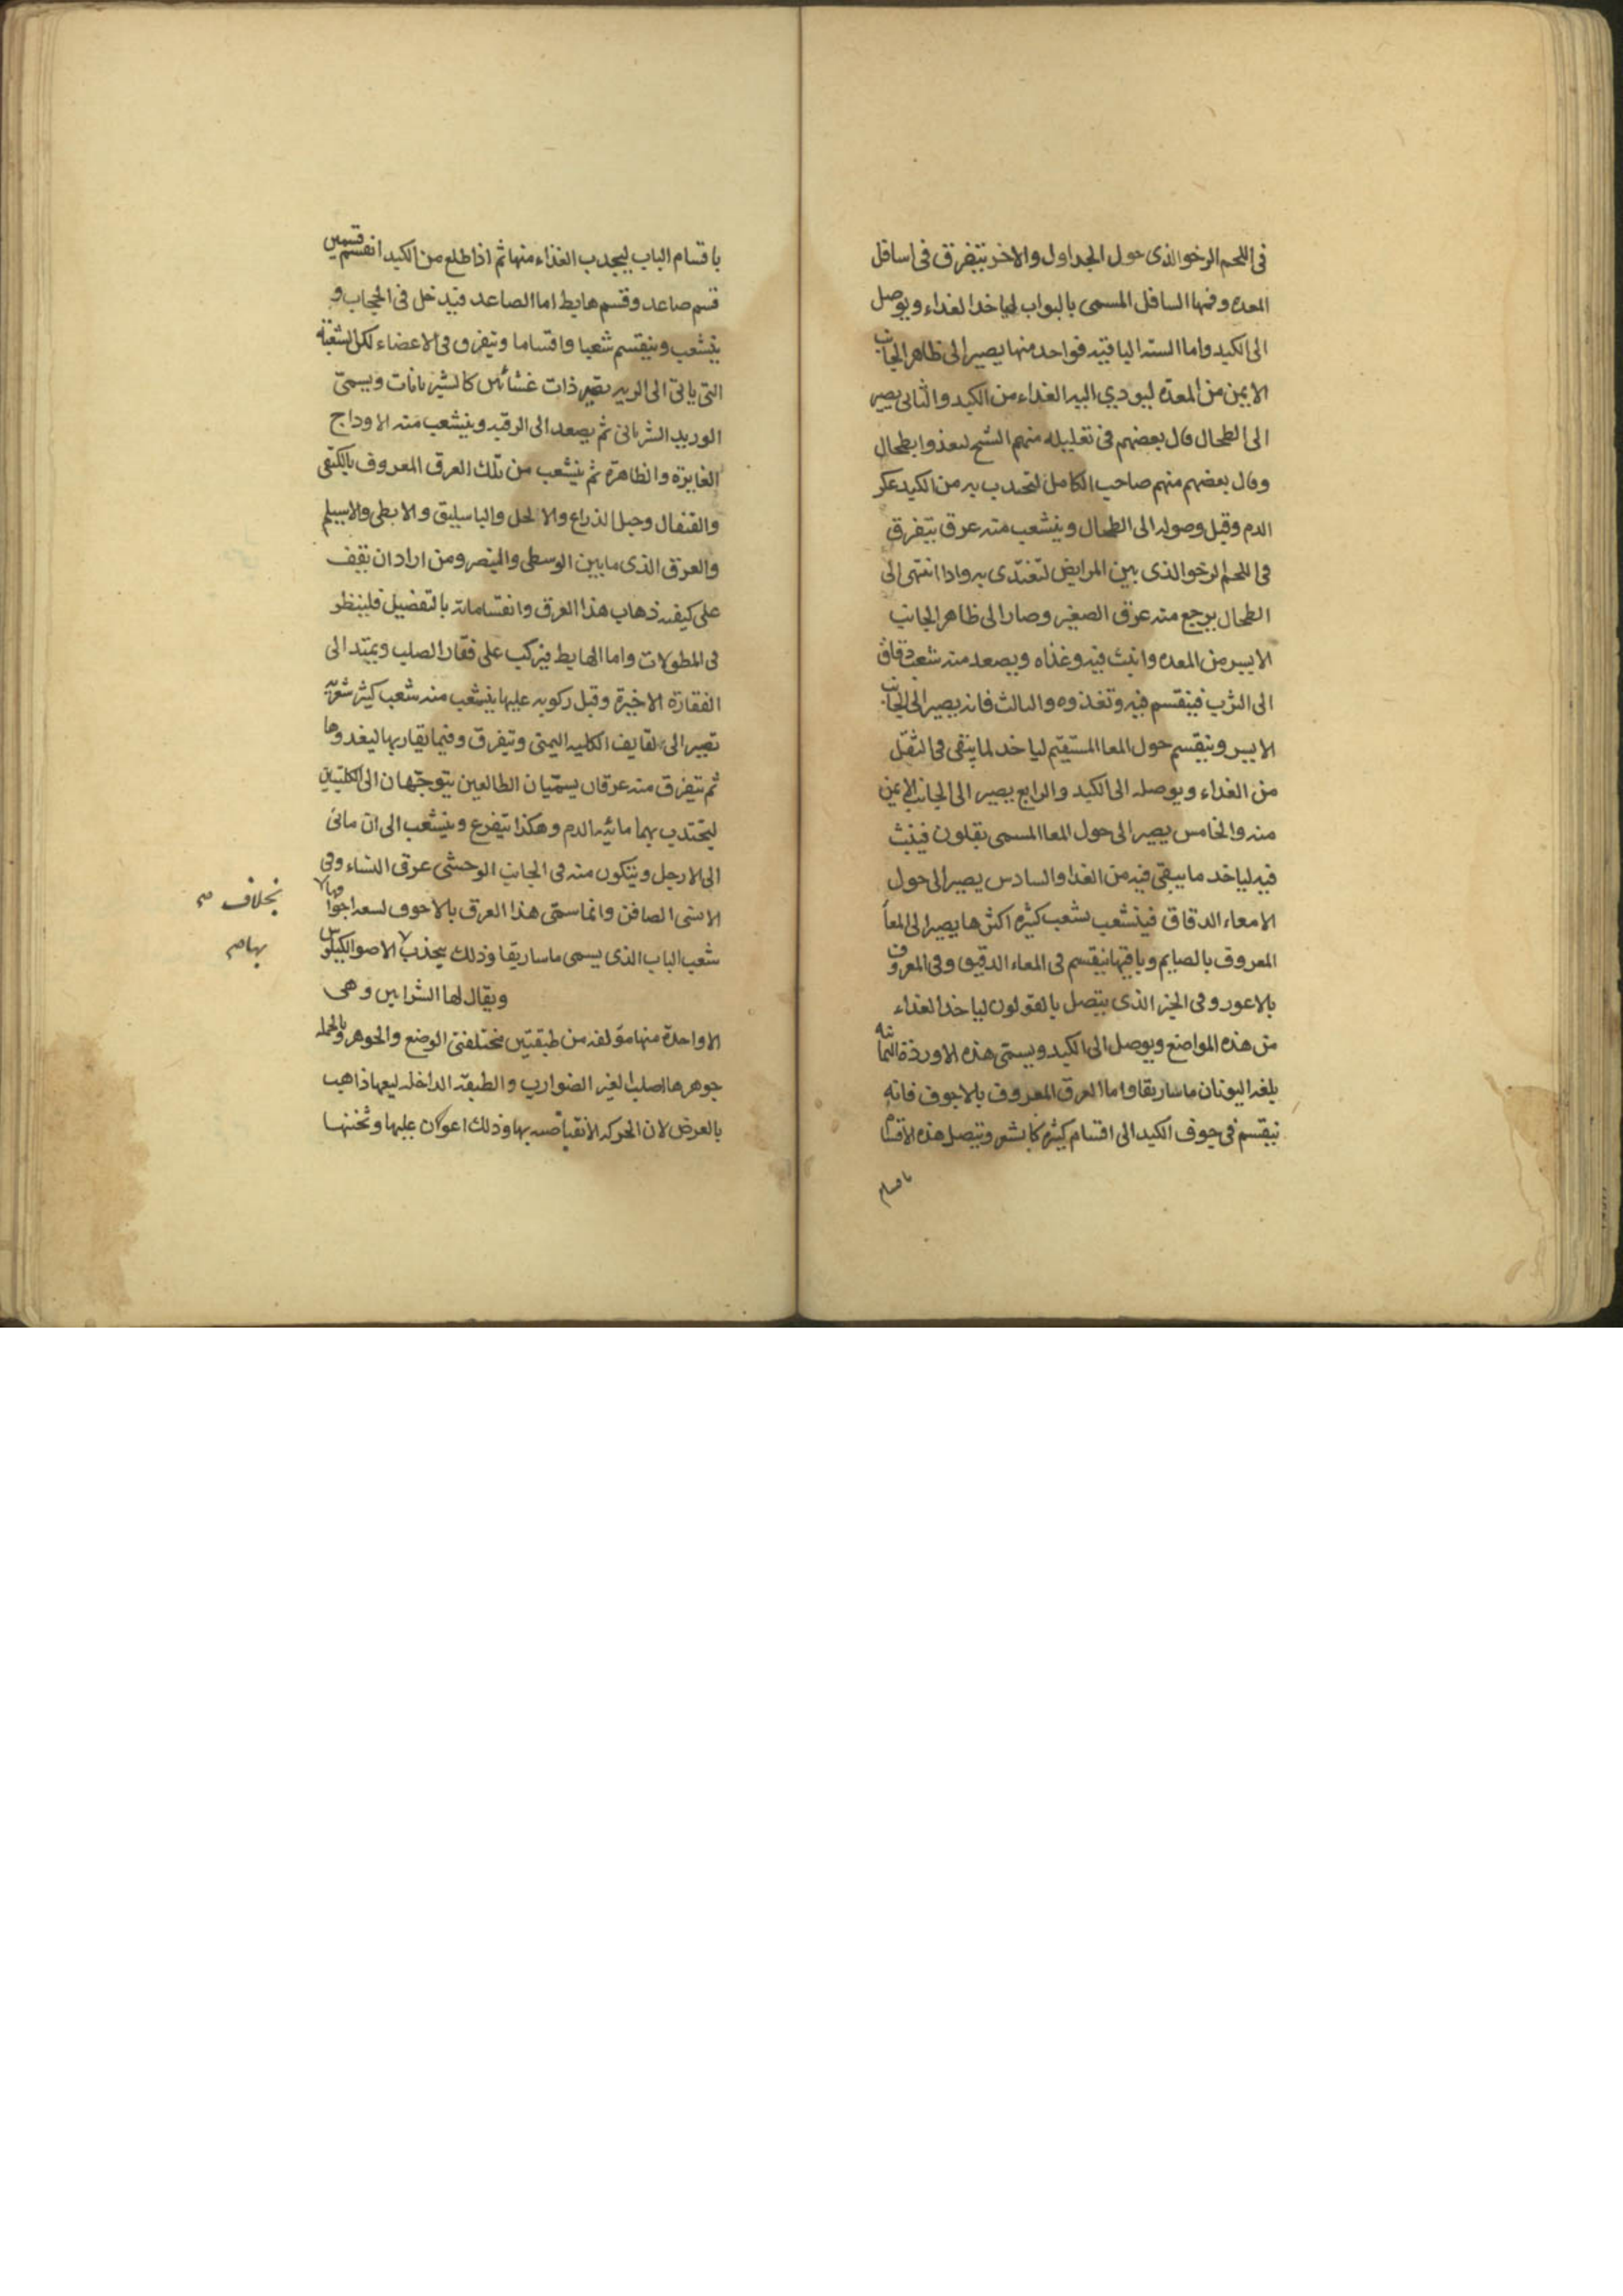 فى اللحم الرخو الذى حول الجداول والاخر يتفرق فى اسافل
المعده وفمها السافل المسمى بالبواب لياخذ الغداء ويوصل
الى الكبد واما السته الباقيه فواحد منها يصير الى ظاهر الجانب
الايمن من المعده ليودي اليه الغداء من الكبد والثانى يصير
الى الطحال قال بعضهم فى تعليله منهم الشيخ ليغذوا بطحال
وقال بعضهم منهم صاحب الكامل لتجدب به من الكبد عكر
الدم وقبل وصوله الى الطحال وينشعب منه عرق يتفرق
فى اللحم الرخو الذى بين المرابض لتغتدى به واذا انتهى الى
الطحال يرجع منه عرق الصغير وصار الى ظاهر الجانب
الايسر من المعده وانبث فيه وغذاه ويصعد منه شعب دقاق
الى الثرب فينقسم فيه وتغذوه والثالث فانه يصير الى الجانب
الايسر وينقسم حول المعا المستقيم لياخد لما يبقى فى الثفل
من الغداء ويوصله الى الكبد والرابع يصير الى الجانب الايمن
منه والخامس يصير الى حول المعا المسمى بقلون فينبث
فيه لياخد ما يبقى فيه من الغدا والسادس يصير الى حول
الامعاء الدقاق فينشعب بشعب كثيره اكثرها يصير الى المعا
المعروف بالصايم وباقيها ينقسم فى المعاء الدقيق وفى المعروف
بالاعور وفى الجزء الذى يتصل بالقولون لياخد الغداء
من هذه المواضع ويوصل الى الكبد ويسمى هذه الاوردة الثمانيه
بلغه اليونان ماساريقا واما العرق المعروف بالاجوف فانه
ينقسم فى جوف الكبد الى اقسام كثيره كا بشعر ويتصل هذه الاقسام
باقسام
باقسام الباب ليجدب الغذاء منها ثم اذا طلع من الكبد انقسم قسمين
قسم صاعد وقسم هابط اما الصاعد فيدخل فى الحجاب و
ينشعب وينقسم شعبا واقساما ويتفرق فى الاعضاء لكل الشعبة
التى ياتى الى الريه يصير ذات غشائين كالشريانات ويسمى
الوريد الشريانى ثم يصعد الى الرقبه وينشعب منه الاوداج
الغايرة والظاهرة ثم ينشعب من تلك العرق المعروف بالكتفى
والقنفال وحبل الذراع والاكحل والباسيليق والابطى والاسيلم
والعرق الذى ما بين الوسطى والبنصر ومن اراد ان يقف
على كيفيه ذهاب هذا العرق وانقساماته بالتفصيل فلينظر
فى المطولات واما الهابط فيركب على فقار الصلب ويمتد الى
الفقارة الاخيرة وقبل ركوبه عليها ينشعب منه شعب كثير شعريه
تصير الى لفايف الكليه اليمنى ويتفرق وفيما يقاربها ليغدوها
ثم يتفرق منه عرقان يسميان الطالعين يتوجهان الى الكليتين
ليجتدب بهما مائيه الدم وهكذا يتفرع وينشعب الى ان ماتى
الى الارجل ويتكون منه فى الجانب الوحشى عرق النساء وفى
الانسى الصافن وانما سمى هذا العرق بالاجوف لسعه اجوافها لا
شعب الباب الذى يسمى ماساريقا وذلك يجذب الاصوا الكيلوس
ويقال لها الشرايين وهى
الا واحدة منها مولفه من طبقتين مختلفتى الوضع والجوهر وبالجمله
جوهرها اصلب الغير الضوارب والطبقه الداخله ليفها ذاهب
بالعرض لان الحركه الانقباضيه بها وذلك اعوكان عليها وثخنها
بخلاف صح
بها صح